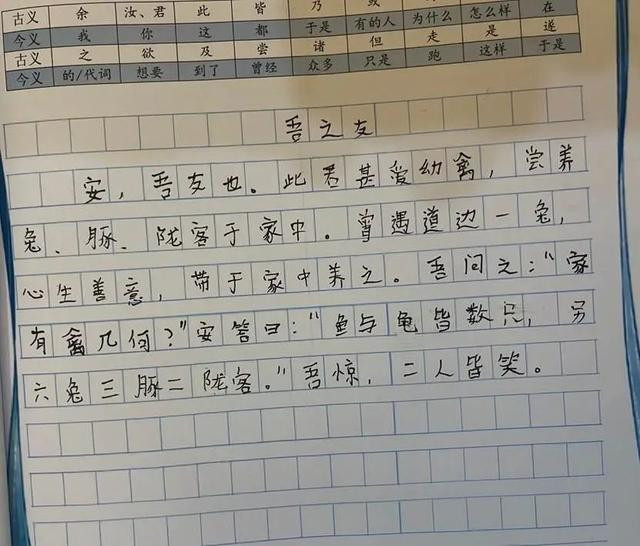 古义 余 汝、君 此 皆 乃 或 为什么 怎么样 在
今义 我 你 这 都 于是 有的人
古义 之 欲 及 尝 诸 但 走 是 遂
今义 的/代词 想要 到了 曾经 众多 只是 跑 这样 于是
吾之友
安，吾友也。此君甚爱幼禽，尝养
兔、豚、陇客于家中。曾遇道边一兔，
心生善意，带于家中养之。吾问之："家
有禽几何？"安答曰："鱼与龟皆数只，另
六兔三豚二陇客。"吾惊，二人皆笑。